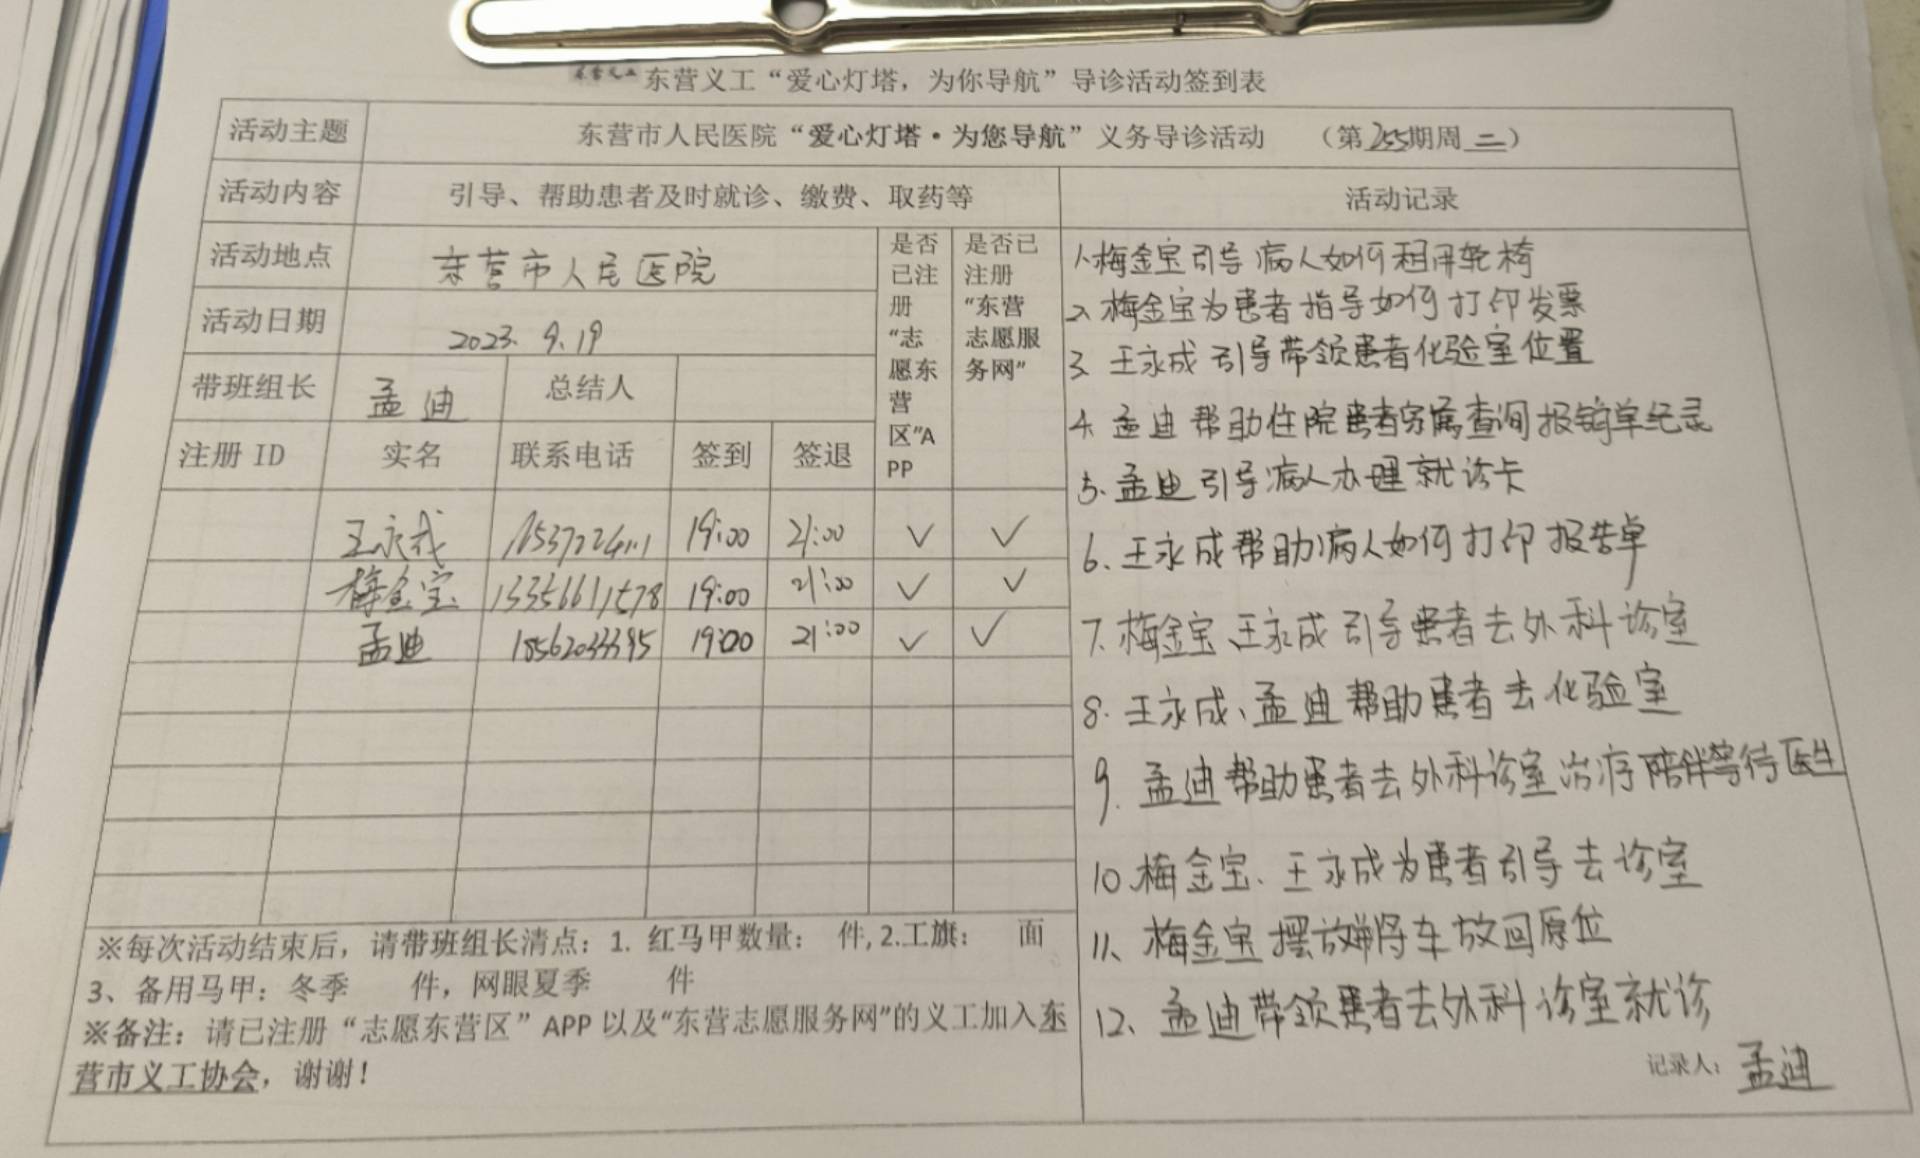 东营义工 东营义工“爱心灯塔，为你导航”导诊活动签到表
活动主题 东营市人民医院“爱心灯塔·为您导航”义务导诊活动 （第255期周二）
活动内容 引导、帮助患者及时就诊、缴费、取药等 活动记录
活动地点 东营市人民医院
活动日期 2023.9.19
带班组长 孟迪 总结人
注册 ID 实名 联系电话 签到 签退
是否
已注
册
“志
愿东
营
区”A
PP
是否已
注册
“东营
志愿服
务网”
王永成 19:00 21:00 ✓ ✓
梅金宝 13356611578 19:00 21:00 ✓ ✓
孟迪 18562033395 19:00 21:00 ✓ ✓
※每次活动结束后，请带班组长清点：1. 红马甲数量： 件, 2.工旗： 面
3、备用马甲：冬季 件，网眼夏季 件
※备注：请已注册“志愿东营区”APP 以及“东营志愿服务网”的义工加入东
营市义工协会，谢谢！
1.梅金宝引导病人如何租用轮椅
2.梅金宝为患者指导如何打印发票
3.王永成引导带领患者化验室位置
4.孟迪帮助住院患者家属查询报销单纪录
5.孟迪引导病人办理就诊卡
6.王永成帮助病人如何打印报告单
7.梅金宝、王永成引导患者去外科诊室
8.王永成、孟迪帮助患者去化验室
9.孟迪帮助患者去外科诊室治疗陪伴等待医生
10.梅金宝、王永成为患者引导去诊室
11、梅金宝摆放将车放回原位
12、孟迪带领患者去外科诊室就诊
记录人：孟迪